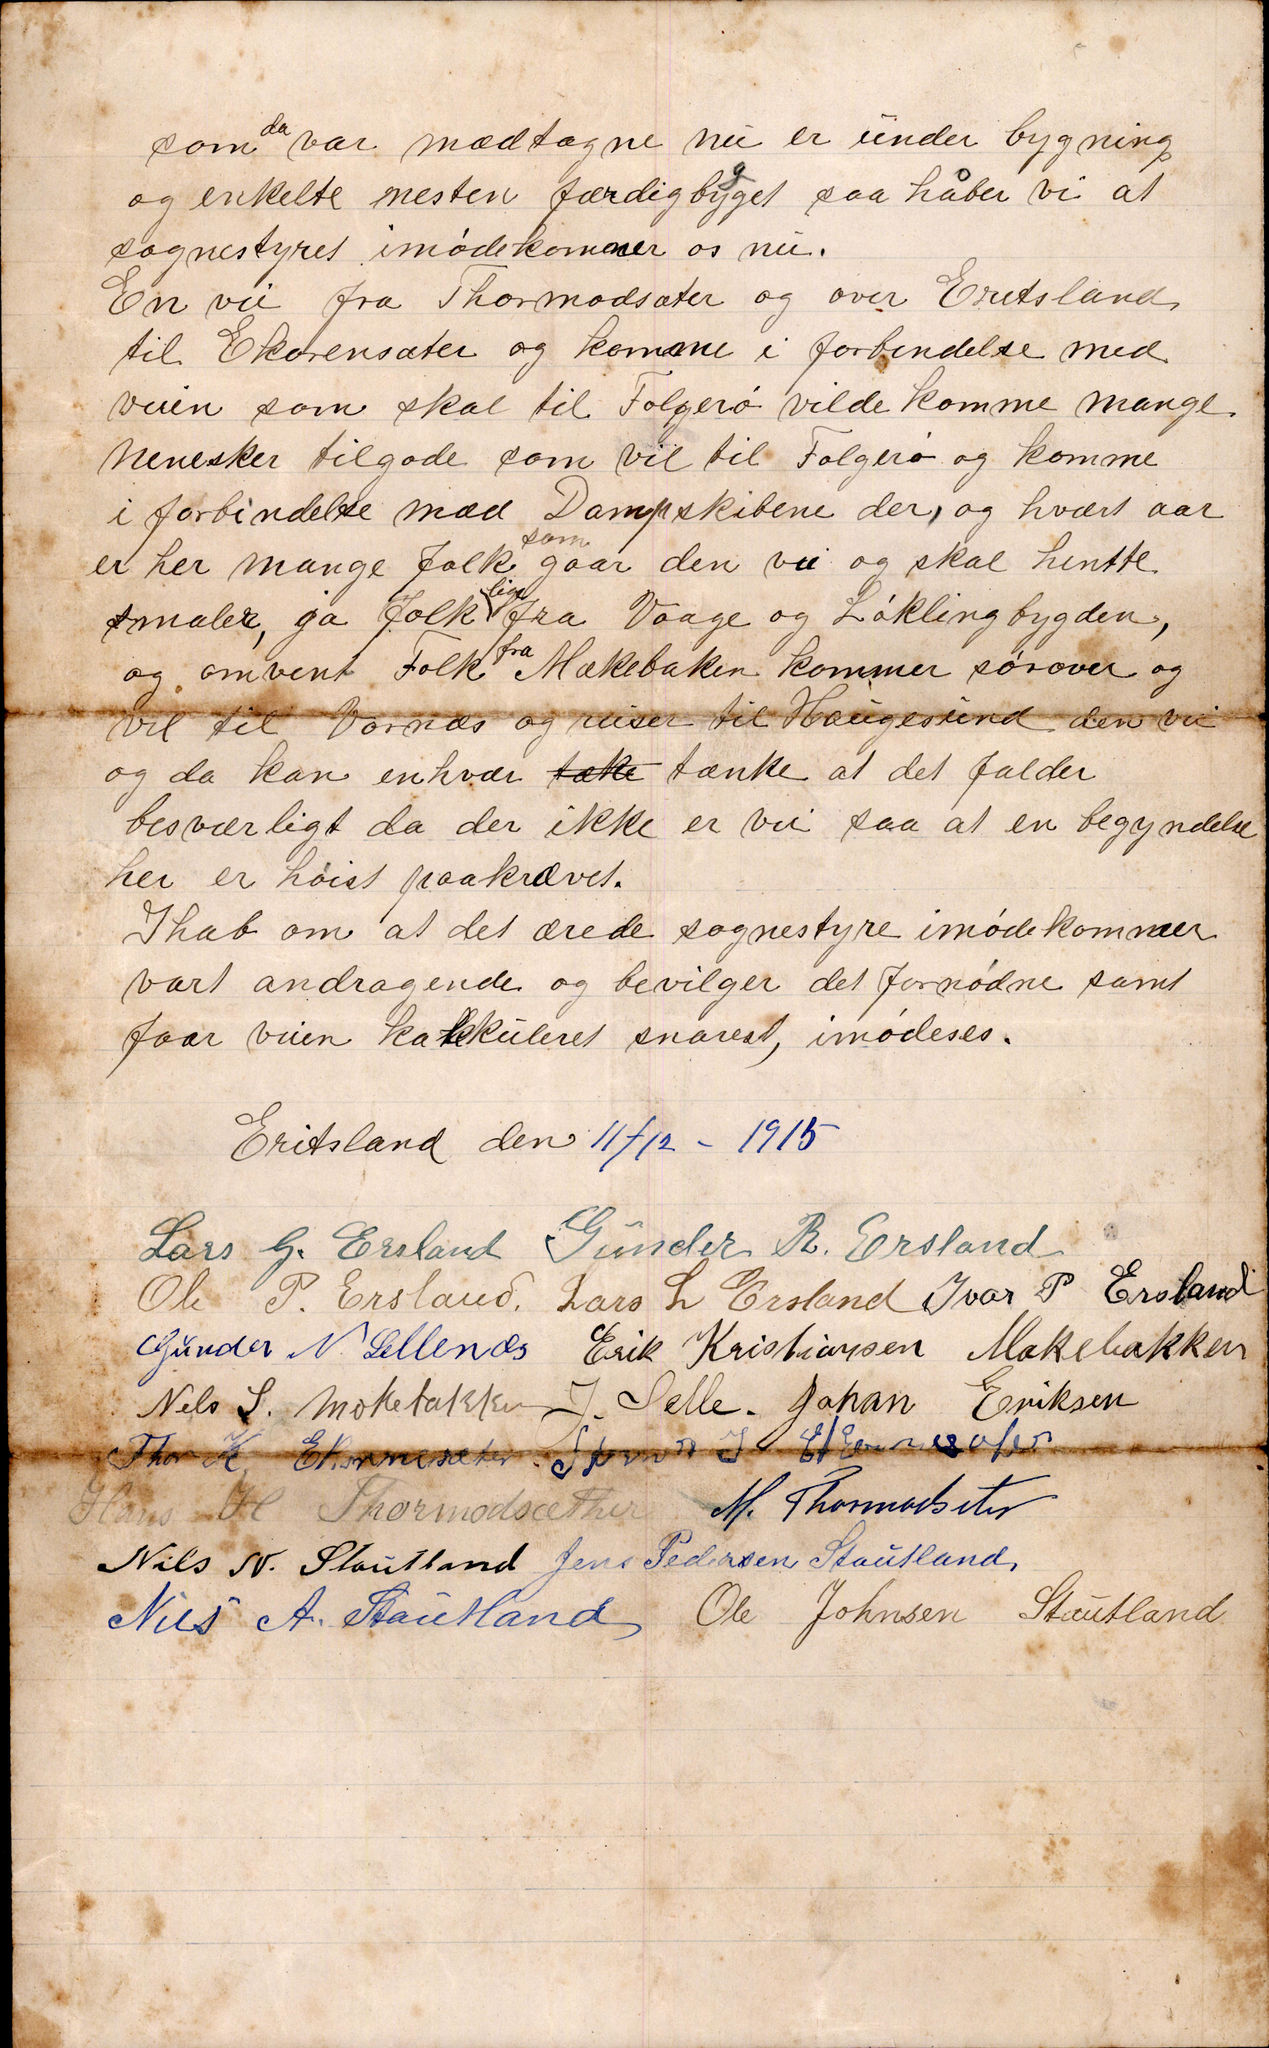 som da var mædtagne nu er under bygning
og enkelte nesten færdigbygget saa håber vi at
sognestyret imødekommer os nu.
En vei fra Thormodsæter og over Eritsland
til Ekorensæter og komme i forbindelse med
veien som skal til Folgerö vilde komme mange
Menesker tilgode som vil til Folgerö og komme
i forbindelse mæd Dampskibene der, og hvært aar
er her mange folk som gaar den vei og skal hentte
smaler, ja Folk lige fra Vaage og Løkling bygden,
og omvent Folk fra Mækebaken kommer sørover og
vil til Vornæs og reiser til Haugesund den vei
og da kan enhvær tæke tænke at det falder
besværligt da der ikke er vei saa at en begyndelse
her er høist paakrævet.
I hab om at det ærede sognestyre imødekommer
vart andragende og bevilger det fornødne samt
faar veien kalkuleret snarest, imødeses.
Eritsland den 11/12 - 1915
Lars G. Ersland Gunder R. Ersland
Ole P. Ersland. Lars L Ersland Ivar P Ersland
Gunder N. Sellenæs Erik Kristiansen Mækebakken
Nels L. Møkebakken J. Selle. Johan Eriksen
Thor K. Ekornesæter. I Ekornesæter
Hans H Thormodsæther M. Thormodsæter
Nils N. Stautland Jens Pedersen Stautland
Nils A. Stautland Ole Johnsen Stautland